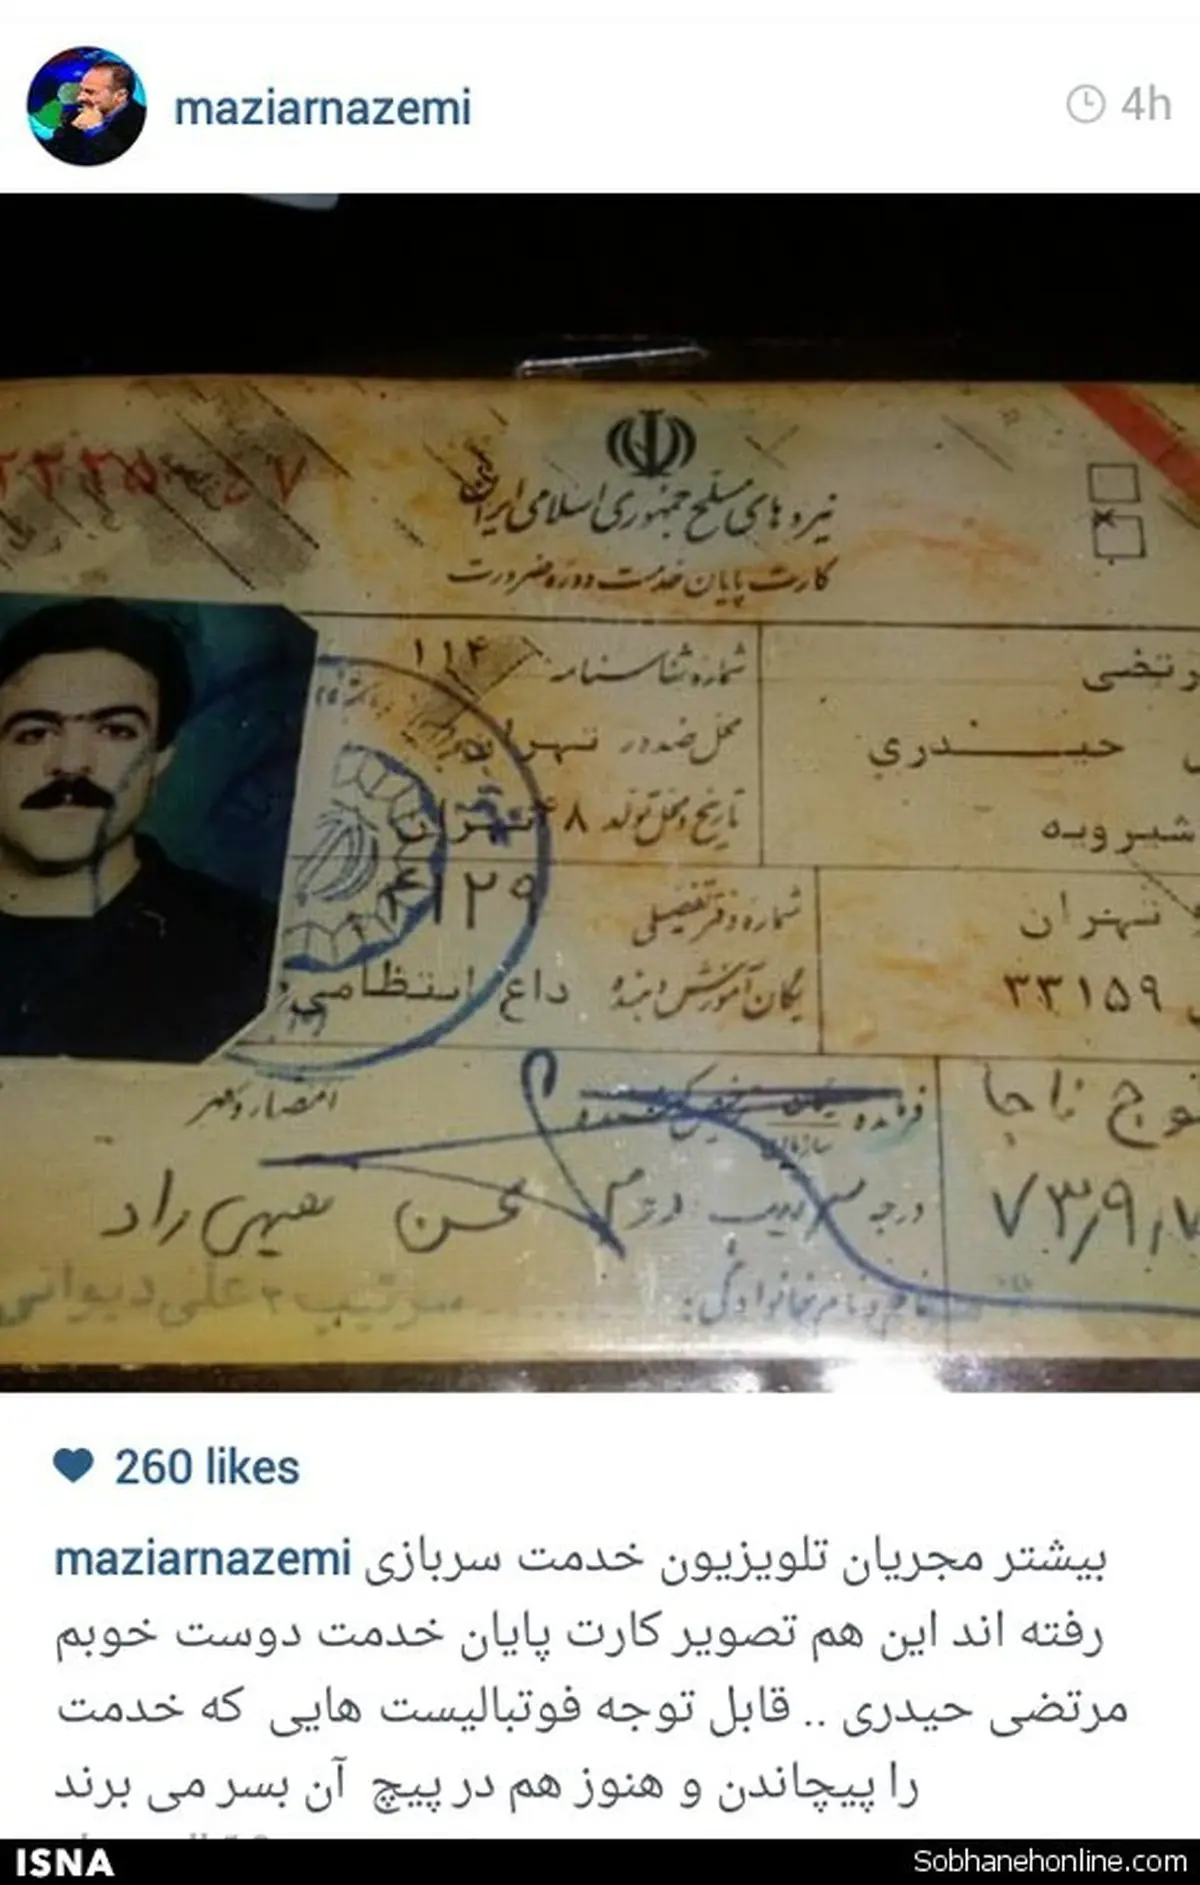 maziarnazemi
4h
نیروهای مسلح جمهوری اسلامی ایران
کارت پایان خدمت دوره ضرورت
رتضی
شماره شناسنامه ۱۱۴
حیــدری
محل صدور تهران
شیرویه
تاریخ و محل تولد ۴۸ تهران
تهران
شماره دفتر تفضیلی ۴۱۲۹
۳۳۱۵۹
داع انتظامی
وج ناجا
امضاء و مهر
۷۳٫۹٫۷
درجه
محسن
راد
نام و نام خانوادگی:
سرتیپ ۲ علی دیوانی
260 likes
maziarnazemi بیشتر مجریان تلویزیون خدمت سربازی
رفته اند این هم تصویر کارت پایان خدمت دوست خوبم
مرتضی حیدری .. قابل توجه فوتبالیست هایی که خدمت
را پیچاندن و هنوز هم در پیچ آن بسر می برند
ISNA
Sobhanehonline.com